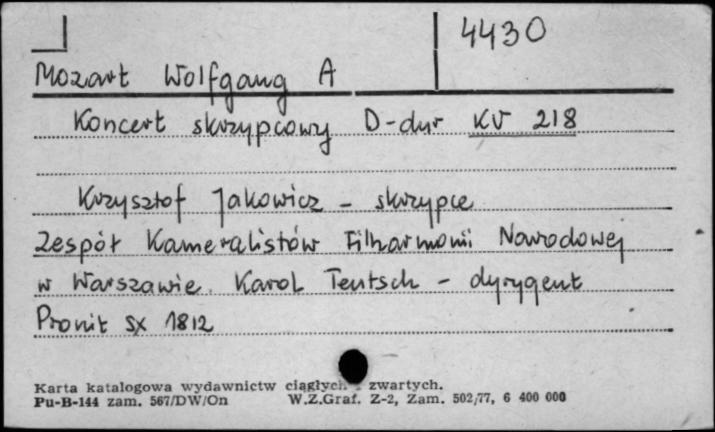 4430
Mozart Wolfgang A
Koncert skrzypcowy D-dur KV 218
Krzysztof Jakowicz - skrzypce
Zespół Kameralistów Filharmonii Narodowej
w Warszawie. Karol Teutsch - dyrygent
Pronit SX 1812
Karta katalogowa wydawnictw ciągłych i zwartych.
Pu-B-144 zam. 567/DW/On W.Z.Graf. Z-2, Zam. 502/77, 6 400 000